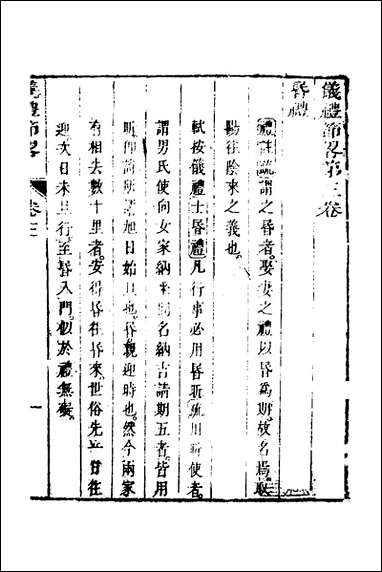 儀禮節畧第三卷
昏禮
禮註疏謂之昏者娶妻之禮以昏為期故名焉取
陽往陰來之義也
軾按儀禮士昏禮凡行事必用昏昕疏用昕使者
謂男氏使向女家納采問名納吉請期五者皆用
昕即詩所謂旭日始旦也昏親迎時也然今兩家
有相去數十里者安得昏往昏來世俗先一日往
迎次日未旦行至昏入門似於禮無礙
儀禮節畧
卷三
一